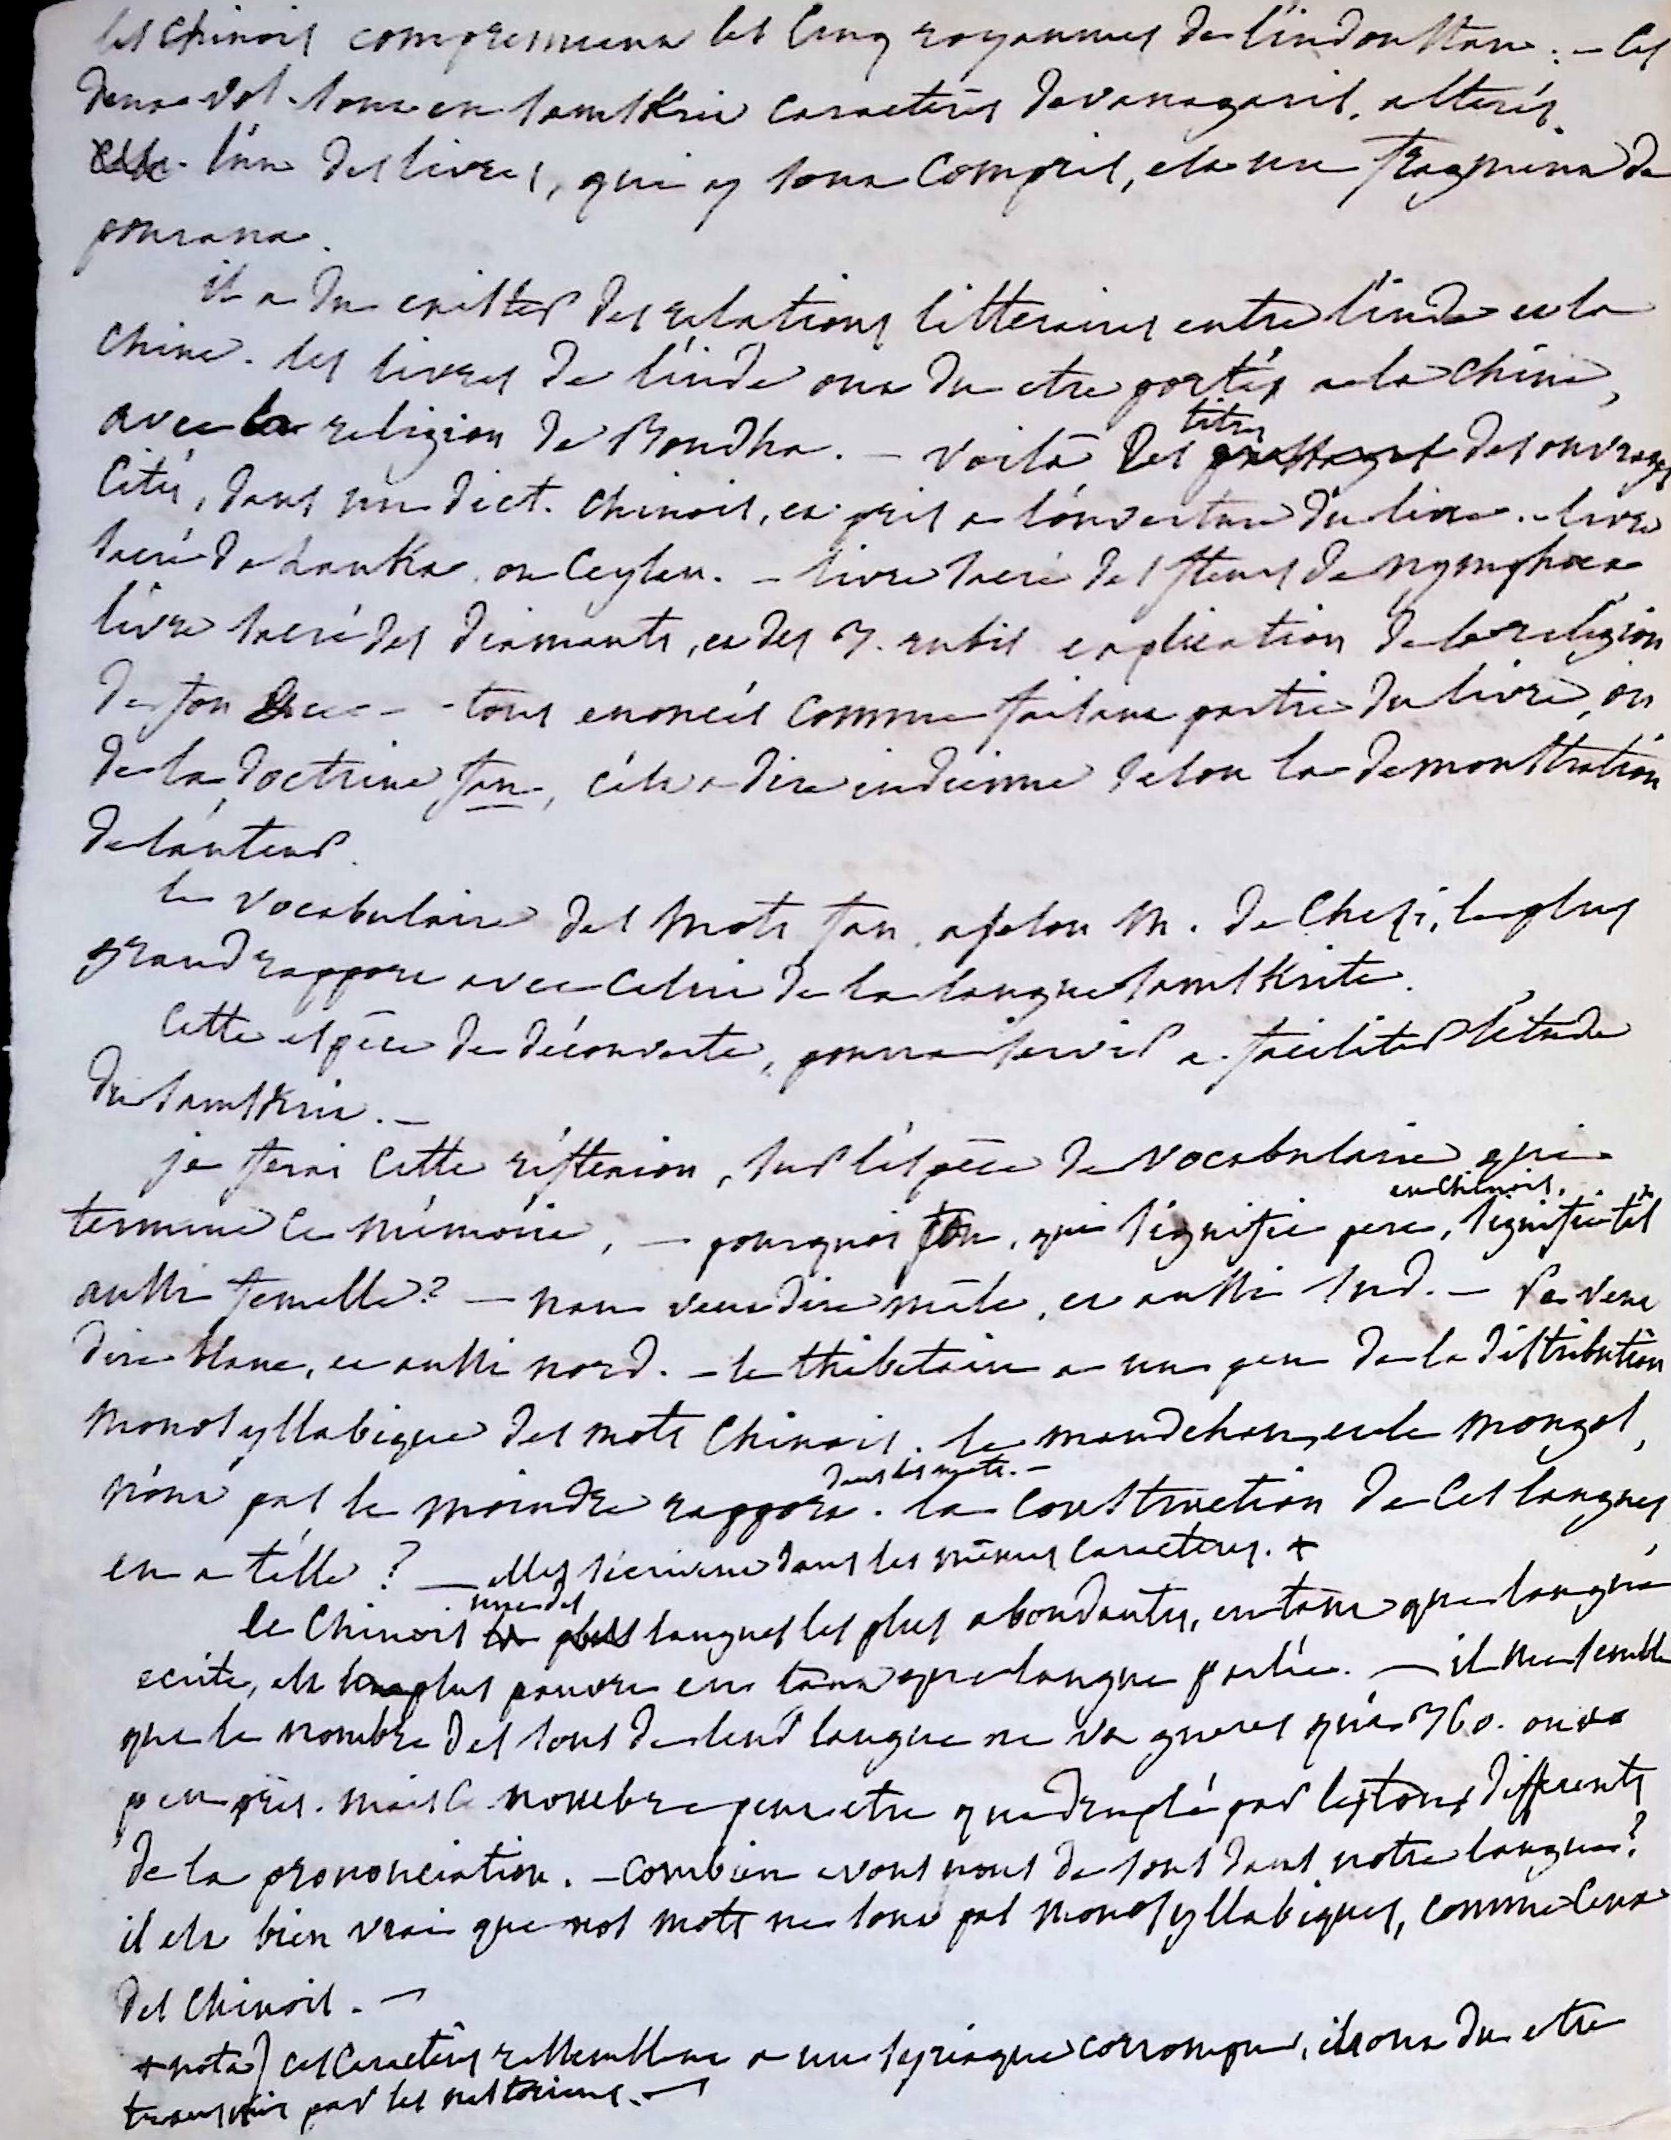 les chinois comprennent les cinq royaumes de l'indoustan. – Ces
deux vol. sont en samskrit caractères devanagaris, alterés.
l'un des livres, qui y sont compris, est un fragment de
pourana.
il a du exister des relations litteraires entre l'inde et la
chine. les livres de l'inde ont du etre portés a la chine,
avec la religion de Boudha. – voilà les passages des ouvrages
titres
cités, dans un dict. chinois, et pris a l'ouverture du livre. – livre
sacré de Lanka ou Ceylan. – livre sacré des fleurs de nymphaea
livre sacré des diamants, et des 7. rubis explication de la religion
de fou – tous enoncés comme faisant partie du livre, ou
de la doctrine fan, c'est a dire indienne selon la demonstration
de l'auteur.
le vocabulaire des mots fan, a selon M. de Chezi, le plus
grand rapport avec celui de la langue samskrite.
Cette espèce de découverte, pourrait servir a faciliter l'étude
du samskrit. –
je ferai cette réflexion, sur l'espèce de vocabulaire qui
en chinois,
termine ce mémoire, – pourquoi fou, qui signifie pere, signifie t'il
aussi femelle? – nan veut dire mâle, et aussi sud. – Pe veut
dire blanc, et aussi nord. – le thibetain a un peu de la distribution
monosyllabique des mots chinois. le mandchou, et le mongol,
dans les mots. –
n'ont pas le moindre rapport. la construction de ces langues
en a t'elle? – elles s'écrivent dans les mêmes caractères. +
une des
le Chinois la plus langues les plus abondantes, en tant que langue
ecrite, est la plus pauvre en tant que langue parlée. – il me semble
que le nombre des sons de leur langue ne va gueres qu'a 360. ou a
peu près. mais ce nombre peut etre quadruplé par les tons differents
de la prononciation. – combien avons nous de sons dans notre langue?
il est bien vrai que nos mots ne sont pas monosyllabiques, comme ceux
des chinois. –
+ nota) ces caractères ressemblent a un syriaque corrompu, ils ont du etre
transmis par les nestoriens. –